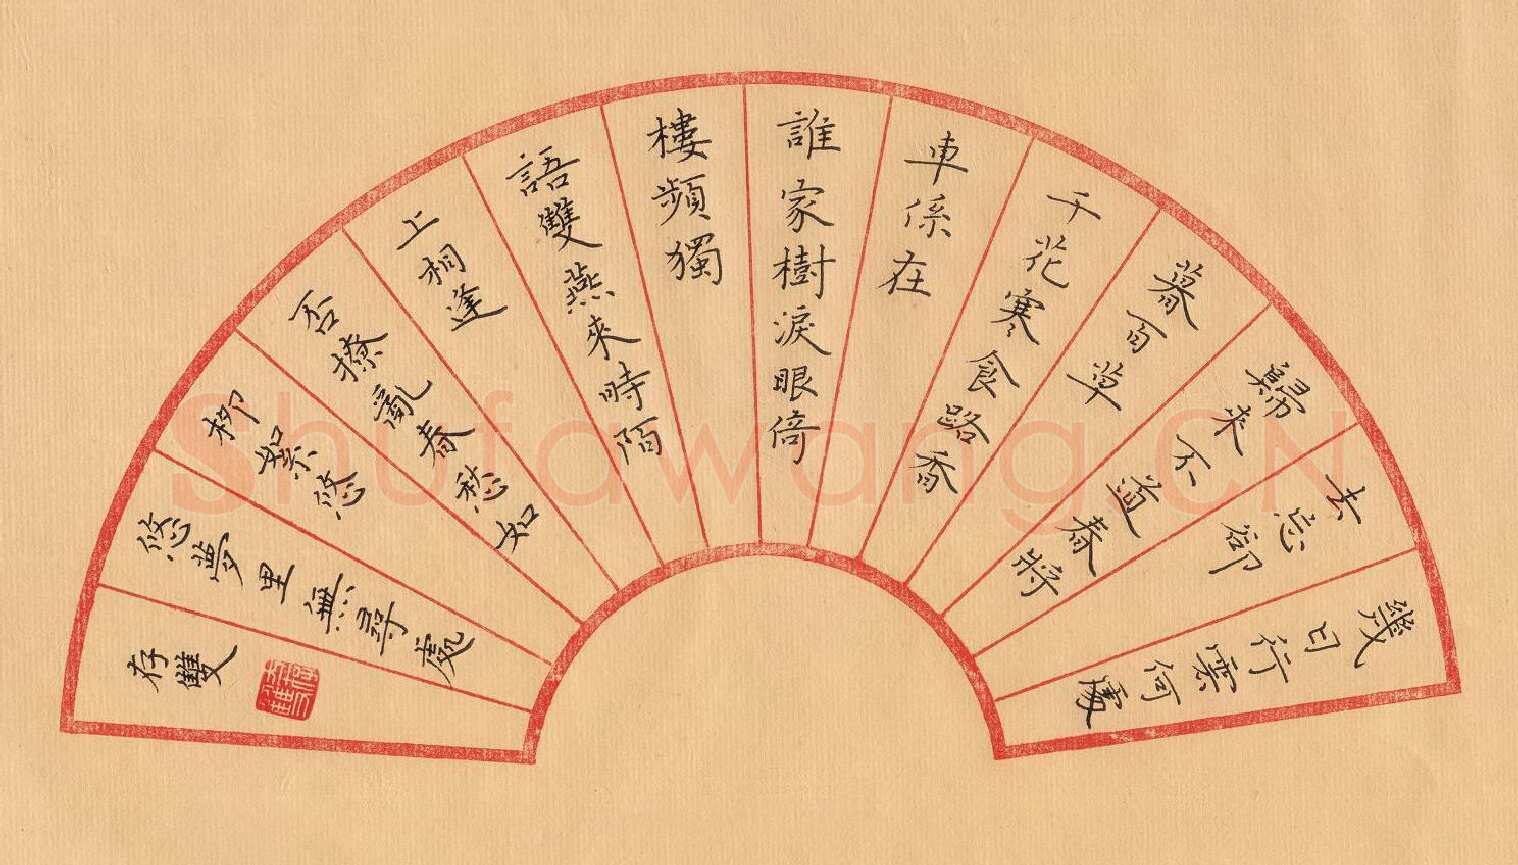 幾日行雲何處
去忘卻
歸來不道春將
暮百草
千花寒食路香
車係在
誰家樹淚眼倚
樓頻獨
語雙燕來時陌
上相逢
否撩亂春愁如
柳絮悠
悠夢里無尋處
存雙
Shufawang.CN